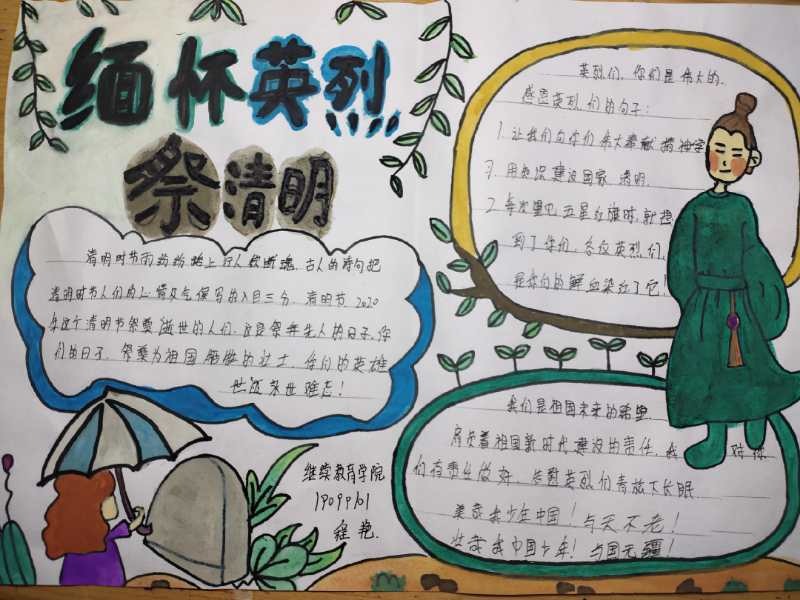 缅怀英烈
祭清明
清明时节雨纷纷路上行人欲断魂 古人的诗句把
清明时节人们的心情及气候写的入目三分 清明节 2020
年这个清明节祭奠逝世的人们 这是祭奔先人的日子
们的日子 祭奠为祖国牺牲的壮士 你们的英雄
世迹永世难忘！
继续教育学院
19099101
程艳
英烈们，你们是伟大的
感恩英烈们的句子：
1 让我们向你们伟大奉献精神
3 用知识建设国家 清明
2 每次望见五星红旗时，就想
到了你们，各位英烈们，
是你们的鲜血染红了它！
我们是祖国未来的
肩负着祖国新时代建设的责任，我
们有责任做好 英烈们请放下长眠
美哉我少年中国！与天不老！
壮哉我中国少年！与国无疆！